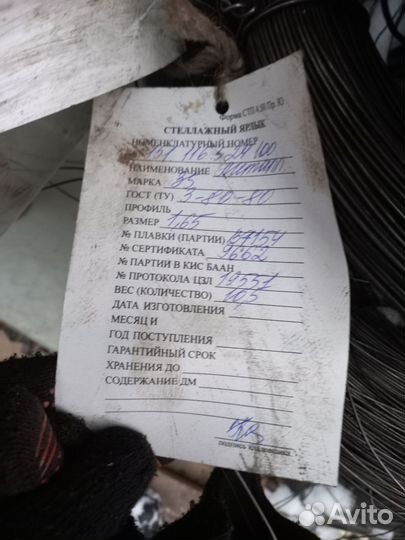 Форма СТП 4.50 Пр. Ю
СТЕЛЛАЖНЫЙ ЯРЛЫК
НОМЕНКЛАТУРНЫЙ НОМЕР
131 116 524 100
НАИМЕНОВАНИЕ
МАРКА 35
ГОСТ (ТУ) 3-80-80
ПРОФИЛЬ
РАЗМЕР 1,65
№ ПЛАВКИ (ПАРТИИ) 67154
№ СЕРТИФИКАТА 9662
№ ПАРТИИ В КИС БААН
№ ПРОТОКОЛА ЦЗЛ 19551
ВЕС (КОЛИЧЕСТВО) 105
ДАТА ИЗГОТОВЛЕНИЯ
МЕСЯЦ И
ГОД ПОСТУПЛЕНИЯ
ГАРАНТИЙНЫЙ СРОК
ХРАНЕНИЯ ДО
СОДЕРЖАНИЕ ДМ
подпись кладовщика
Avito